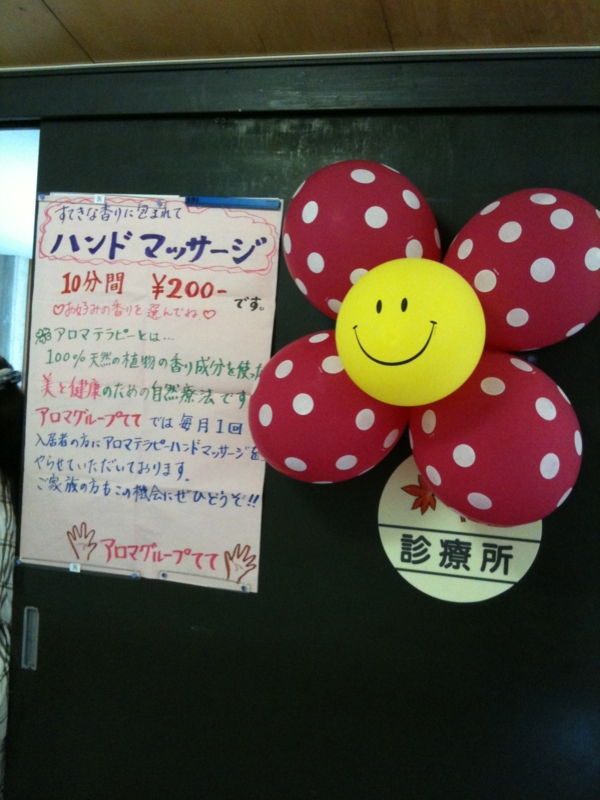 すてきな香りに包まれて
ハンドマッサージ
10分間 ¥200-です。
♡お好みの香りを選んでね♡
アロマテラピーとは…
100%天然の植物の香り成分を使った
美と健康のための自然療法です
アロマグループててでは毎月1回
入居者の方にアロマテラピーハンドマッサージを
やらせていただいております。
ご家族の方もこの機会にぜひどうぞ!!
アロマグループてて
診療所